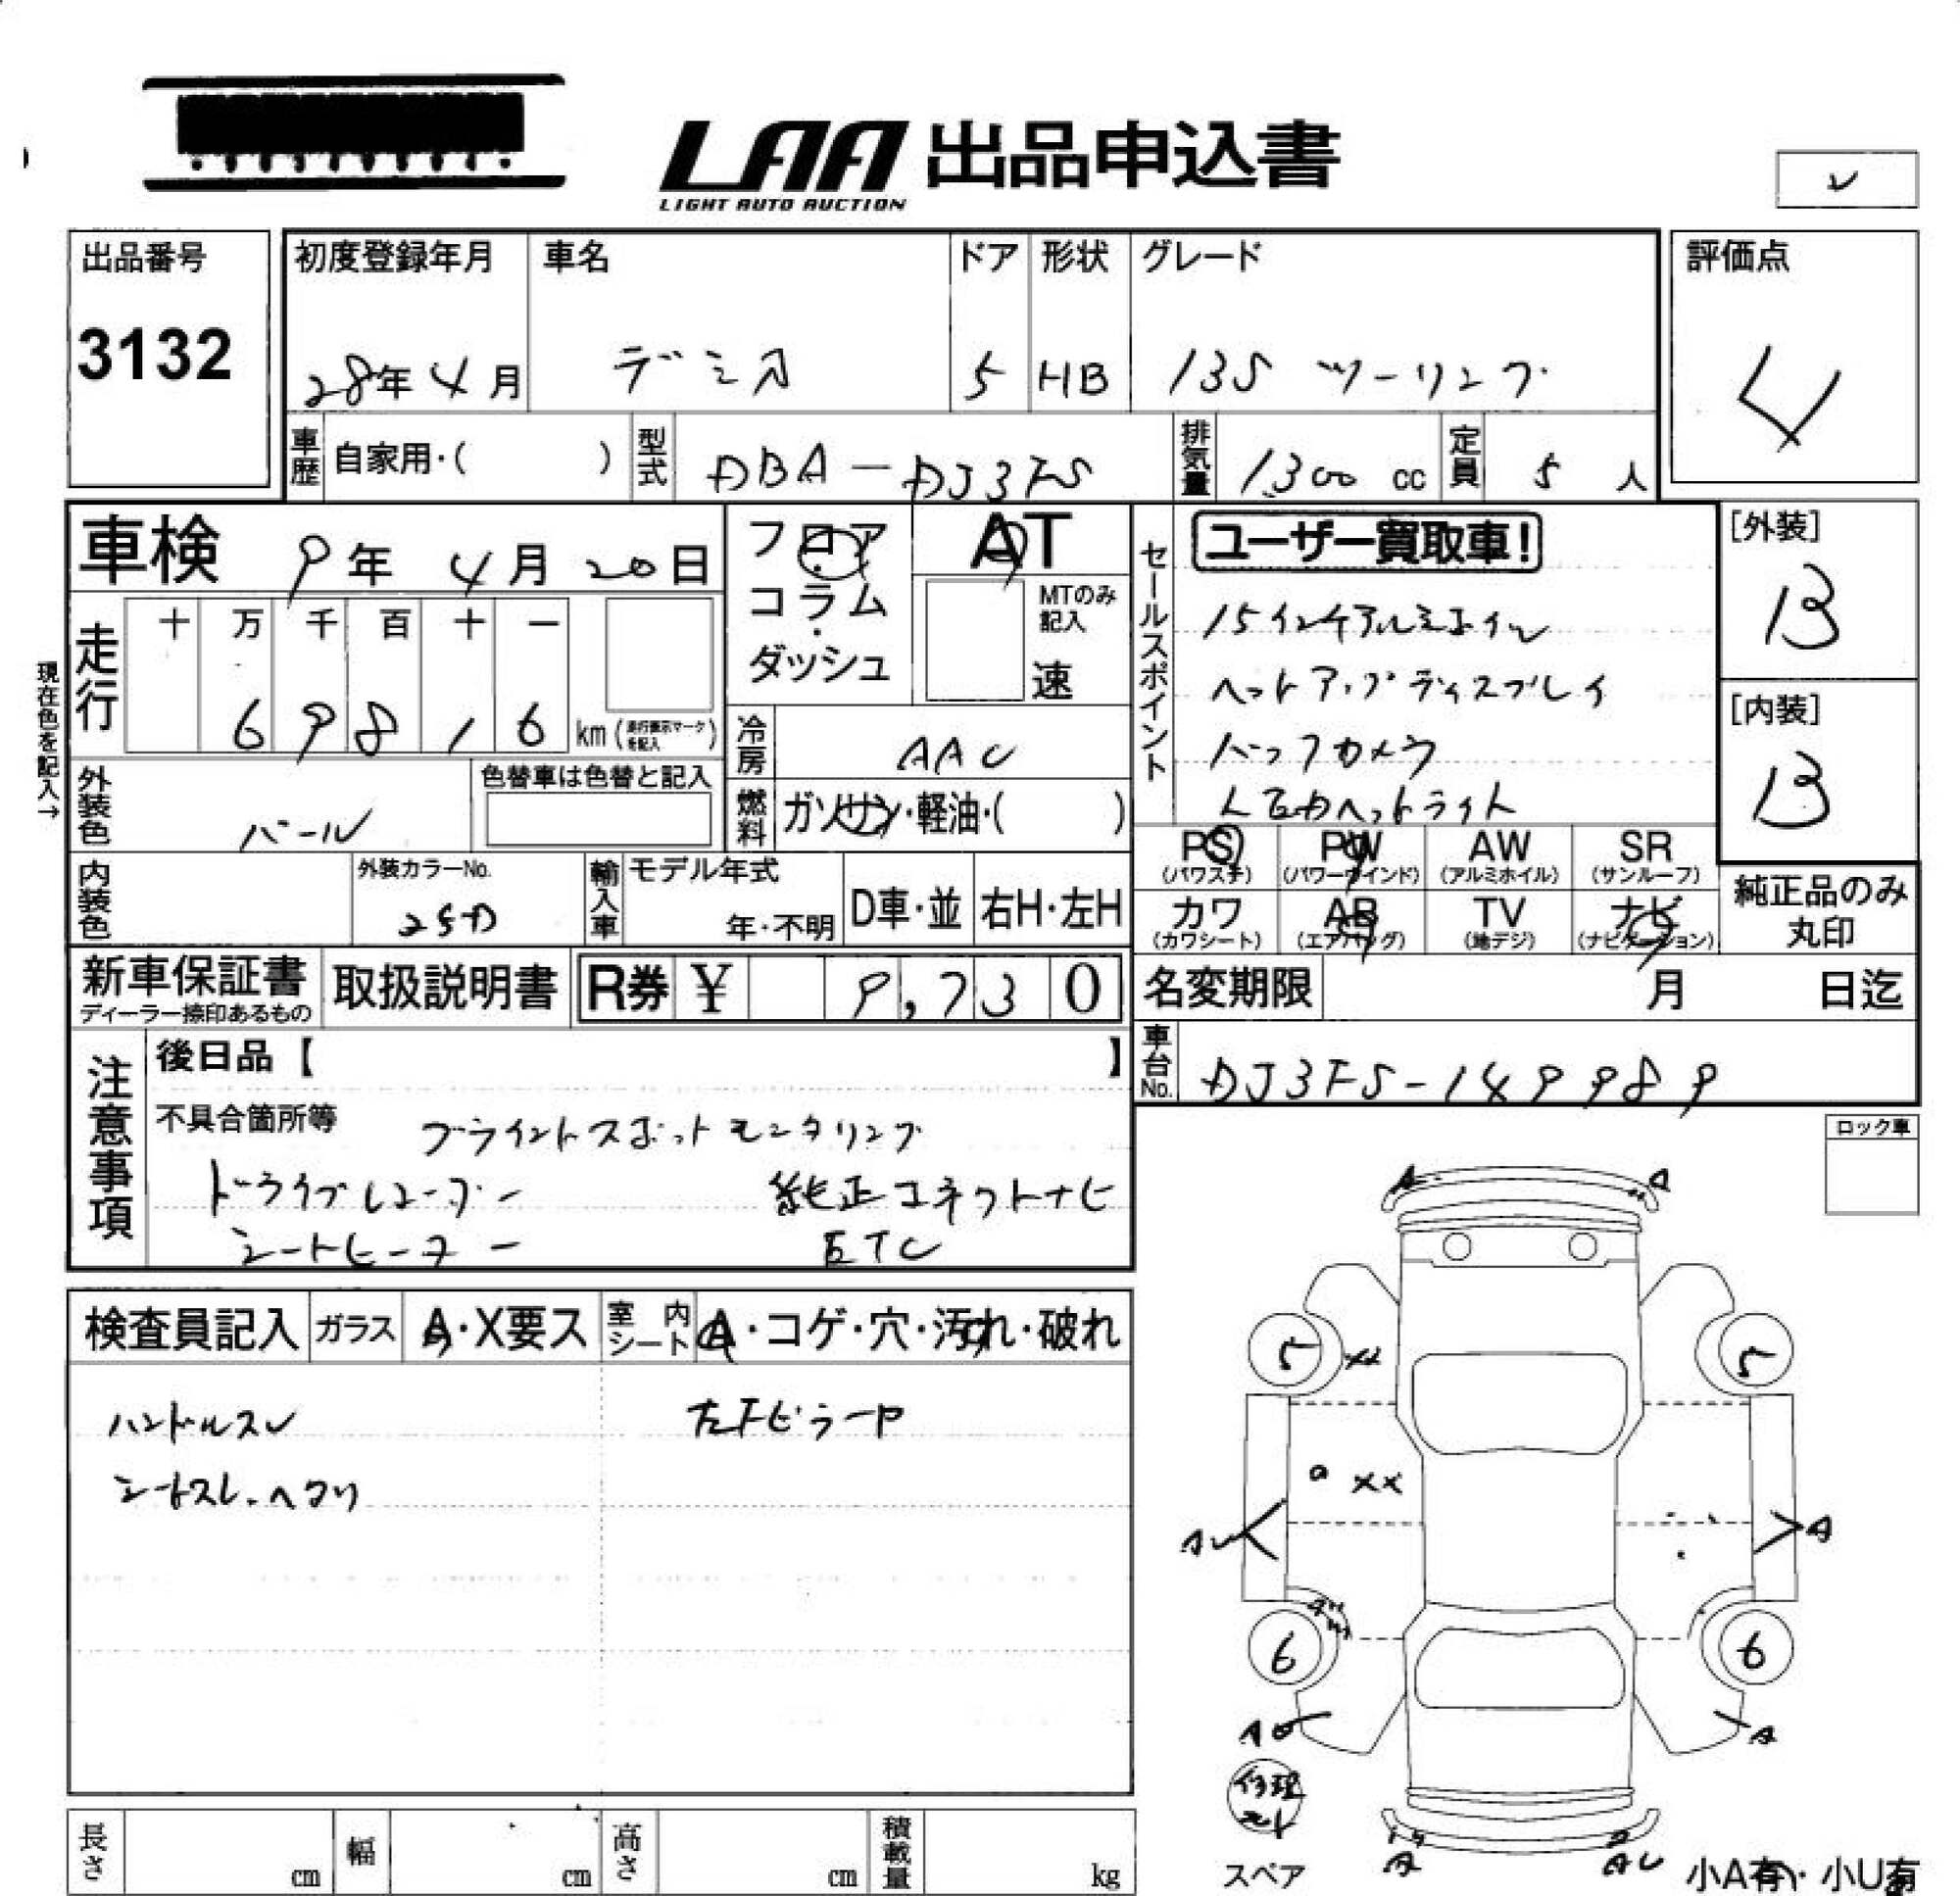 LAA 出品申込書
LIGHT AUTO AUCTION
出品番号
3132
初度登録年月
28年4月
車名
デミオ
ドア
5
形状
HB
グレード
13S ツーリング
評価点
4
車歴 自家用・( )
型式 DBA-DJ3FS
排気量 1300 cc
定員 5 人
車検 9年 4月 20日
フロア・コラム・ダッシュ
AT
MTのみ記入
速
セールスポイント
ユーザー買取車!
15インチアルミホイル
ヘットアップディスプレイ
バックカメラ
LEDヘットライト
[外装]
B
[内装]
B
現在色を記入→
走行
十 万 千 百 十 一
6 9 8 1 6 km (走行表示マークを記入)
冷房 AAC
燃料 ガソリン・軽油・( )
外装色 パール
色替車は色替と記入
内装色
外装カラーNo.
25D
輸入車
モデル年式
年・不明
D車・並
右H・左H
PS (パワステ)
PW (パワーウインド)
AW (アルミホイル)
SR (サンルーフ)
カワ (カワシート)
AB (エアバッグ)
TV (地デジ)
ナビ (ナビゲーション)
純正品のみ丸印
新車保証書
ディーラー捺印あるもの
取扱説明書
R券 ¥ 9,730
名変期限 月 日迄
車台No. DJ3FS-149989
注意事項
後日品【 】
不具合箇所等
ブライントスポットモニタリング
ドライブレコーダー 純正コネクトナビ
シートヒーター ETC
ロック車
検査員記入
ガラス A・X要ス
室内シート A・コゲ・穴・汚れ・破れ
ハンドルスレ
左FピラーP
シートスレ・ヘタリ
A A
5 XX 5
XX
AU A
6 6
A
A AU
スペア
小A有・小U有
長さ cm
幅 cm
高さ cm
積載量 kg